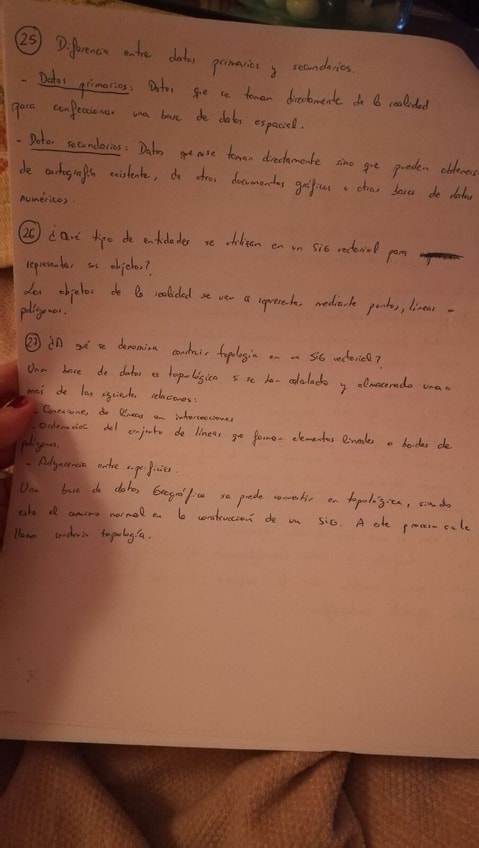 25 Diferencia entre datos primarios y secundarios.
- Datos primarios: Datos que se toman directamente de la realidad
para confeccionar una base de datos espacial.
- Datos secundarios: Datos que no se toman directamente sino que pueden obtenerse
de cartografía existente, de otros documentos gráficos u otras bases de datos
numéricos.
26 ¿Qué tipo de entidades se utilizan en un SIG vectorial para
representar sus objetos?
Los objetos de la realidad se van a representar mediante puntos, líneas o
polígonos.
27 ¿A qué se denomina construir topología en un SIG vectorial?
Una base de datos es topológica si se han calculado y almacenado una o
más de las siguientes relaciones:
- Conexiones de líneas en intersecciones
- Ordenación del conjunto de líneas que forman elementos lineales o bordes de
polígonos.
- Adyacencia entre superficies.
Una base de datos Geográfica se puede convertir en topológica, siendo
este el camino normal en la construcción de un SIG. A este proceso se le
llama construir topología.